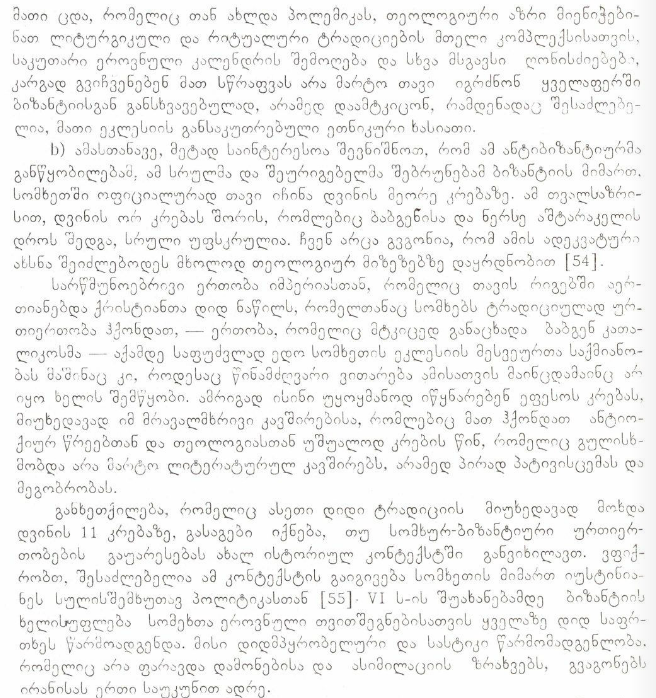 მათი ცდა, რომელიც თან ახლდა პოლემიკას, თეოლოგიური აზრი მიენიჭები-
ნათ ლიტურგიკული და რიტუალური ტრადიციების მთელი კომპლექსისათვის,
საკუთარი ეროვნული კალენდრის შემოღება და სხვა მსგავსი ღონისძიებები,
კარგად გვიჩვენებენ მათ სწრაფვას არა მარტო თავი იგრძნონ ყველაფერში
ბიზანტიისგან განსხვავებულად, არამედ დაამტკიცონ, რამდენადაც შესაძლებე-
ლია, მათი ეკლესიის განსაკუთრებული ეთნიკური ხასიათი.
b) ამასთანავე, მეტად საინტერესოა შევნიშნოთ, რომ ამ ანტიბიზანტიურმა
განწყობილებამ, ამ სრულმა და შეურიგებელმა შებრუნებამ ბიზანტიის მიმართ,
სომხეთში ოფიციალურად თავი იჩინა დვინის მეორე კრებაზე. ამ თვალსაზრი-
სით, დვინის ორ კრებას შორის, რომლებიც ბაბგენისა და ნერსე აშტარაკელის
დროს შედგა, სრული უფსკრულია. ჩვენ არცა გვგონია, რომ ამის ადეკვატური
ახსნა შეიძლებოდეს მხოლოდ თეოლოგიურ მიზეზებზე დაყრდნობით [54].
სარწმუნოებრივი ერთობა იმპერიასთან, რომელიც თავის რიგებში აერ-
თიანებდა ქრისტიანთა დიდ ნაწილს, რომელთანაც სომხებს ტრადიციულად ურ-
თიერთობა ჰქონდათ, — ერთობა, რომელიც მტკიცედ განაცხადა ბაბგენ კათა-
ლიკოსმა — აქამდე საფუძვლად ედო სომხეთის ეკლესიის მესვეურთა საქმიანო-
ბას მაშინაც კი, როდესაც წინამძღვარი ვითარება ამისათვის მაინცდამაინც არ
იყო ხელის შემწყობი. ამრიგად ისინი უყოყმანოდ იწყნარებენ ეფესოს კრებას,
მიუხედავად იმ მრავალმხრივი კავშირებისა, რომლებიც მათ ჰქონდათ ანტიო-
ქიურ წრეებთან და თეოლოგიასთან უშუალოდ კრების წინ, რომელიც გულისხ-
მობდა არა მარტო ლიტერატურულ კავშირებს, არამედ პირად პატივისცემას და
მეგობრობას.
განხეთქილება, რომელიც ასეთი დიდი ტრადიციის მიუხედავად მოხდა
დვინის 11 კრებაზე, გასაგები იქნება, თუ სომხურ-ბიზანტიური ურთიერ-
თობების გაუარესებას ახალ ისტორიულ კონტექსტში განვიხილავთ. ვფიქ-
რობთ, შესაძლებელია ამ კონტექსტის გაიგივება სომხეთის მიმართ იუსტინია-
ნეს სულისშემხუთავ პოლიტიკასთან [55]. VI ს-ის შუახანებამდე ბიზანტიის
ხელისუფლება სომეხთა ეროვნული თვითშეგნებისათვის ყველაზე დიდ საფრ-
თხეს წარმოადგენდა. მისი დიდმპყრობელური და სასტიკი წარმომადგენლობა,
რომელიც არა ფარავდა დამონებისა და ასიმილაციის ზრახვებს, გვაგონებს
ირანისას ერთი საუკუნით ადრე.